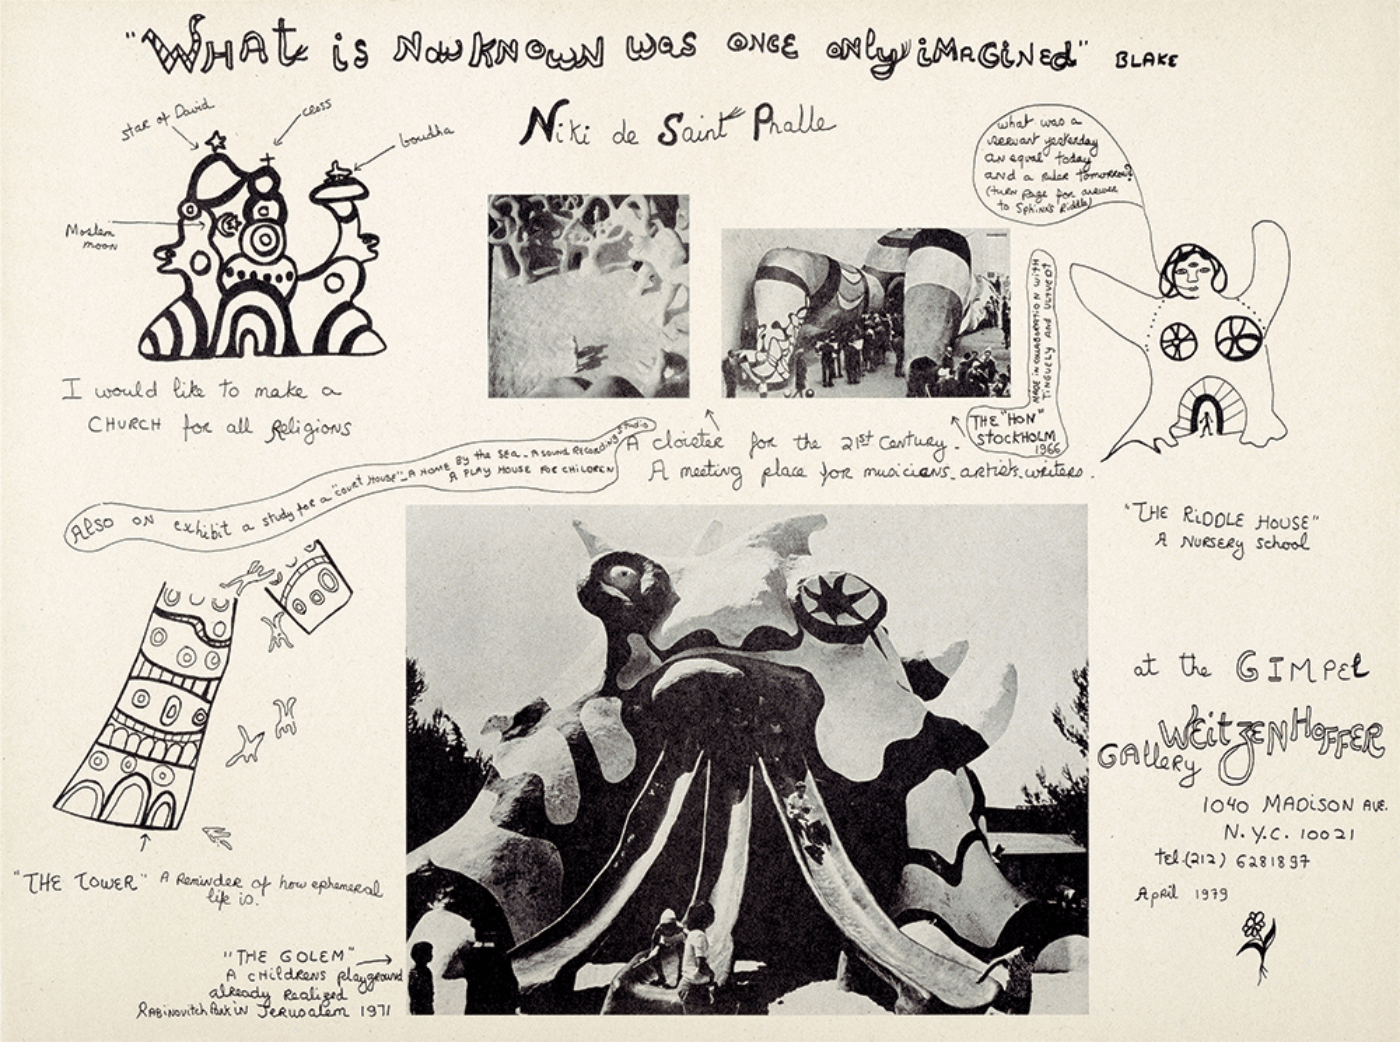 "WHAt is NowKNOWN was ONCE only iMAGiNed" BLAKE
Niki de Saint Phalle
star of David
cross
boudha
Moslem
moon
I would like to make a
CHURCH for all Religions
what was a
servant yesterday
an equal today
and a ruler tomorrow?
(turn page for answer
to Sphinx's Riddle)
MADE IN COLLABORATION WITH
TINGUELY AND ULTVEDT
THE "HON"
STOCKHOLM
1966
A cloister for the 21st Century.
A meeting place for musicians. artists. writers.
Also on exhibit a study for a "court House"_A HOME By the Sea_ A SOUND RECORDING studio
A PLAY HOUSE FOR CHILDREN
"THE RiDDLE HOUSE"
A NURSERy School
"THE TOWER" A Reminder of how ephemeral
life is.
"THE GOLEM"
A childrens playground
already Realized
RABiNOVitch PARK iN Jerusalem 1971
at the GIMPEL
WEitZENHOFFER
GAllery
1040 MADiSON AVE.
N.Y.C. 10021
tel (212) 6281897
April 1979